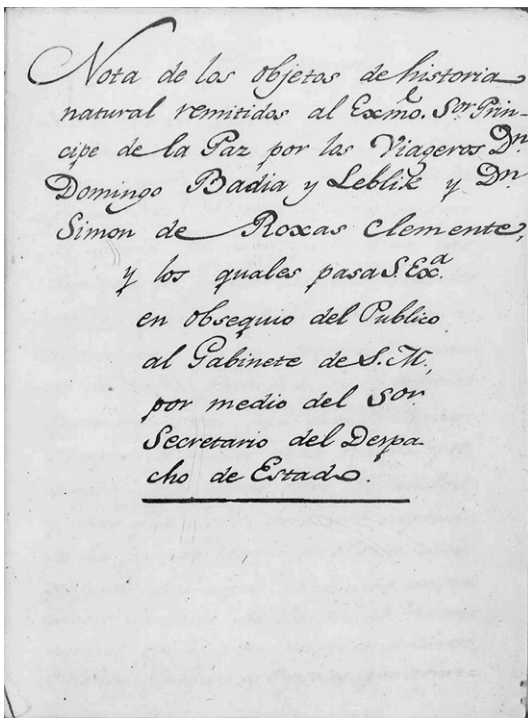 Nota de los objetos de historia
natural remitidos al Exmo. Sor. Prin-
cipe de la Paz por los Viageros Dn.
Domingo Badia y Leblik y Dn.
Simon de Roxas Clemente,
y los quales pasa S.Exa.
en obsequio del Publico
al Gabinete de S.M.,
por medio del Sor
Secretario del Despa-
cho de Estado.